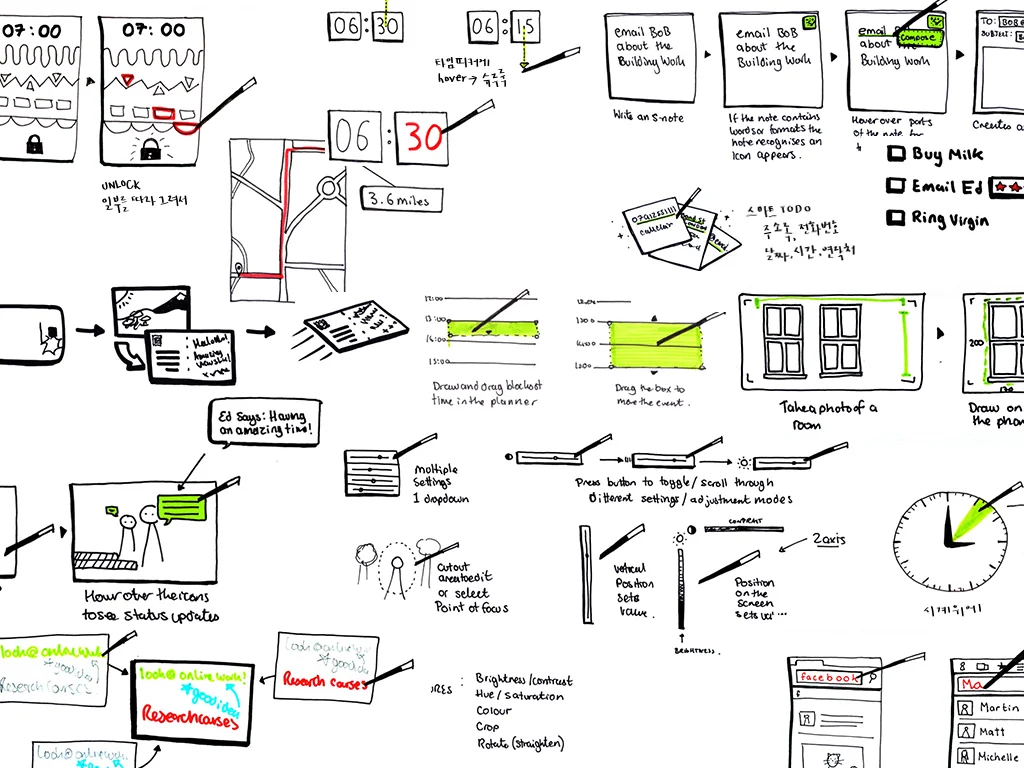 07:00
07:00
UNLOCK
일부를 따라 그려서
06:30
06:15
타임피커에
hover → 숫자로
06:30
3.6 miles
email BoB
about the
Building Work
Write an S-note
email BoB
about the
Building Work
If the note contains
words or formats the
note recognises an
Icon appears.
email
Compose
about the
Building Work
Hover over parts
of the note for
TO: BOB
SUBJECT: B
Creates a
Buy Milk
Email Ed
Ring Virgin
07912555111
call Clair
스마트 TODO
주소록, 전화번호
날짜, 시간, 연락처
Hello!!
Amazing
12:00
13:00
14:00
15:00
Draw and Drag block out
time in the planner
12:00
13:00
14:00
15:00
Drag the box to
move the event.
Take a photo of a
room
200
Draw on
the phon
Ed Says: Having
an amazing time!
Hover over the icons
to see status updates
Multiple
Settings
1 dropdown
Press button to toggle / scroll through
different settings / adjustment modes
Cutout
area to edit
or select
Point of focus
Vertical
Position
sets
value.
CONTRAST
2 axis
Position
on the
screen
sets val...
BRIGHTNESS.
시계위에
look@ online work
good idea
Research courses
look@ online work!
*good idea
Research courses
look@ online work!
*good idea
Research courses
look@ online work
good idea
URES :
Brightness/contrast
Hue / saturation
Colour
Crop
Rotate (straighten)
facebook
f
Ma
Martin
Matt
Michelle